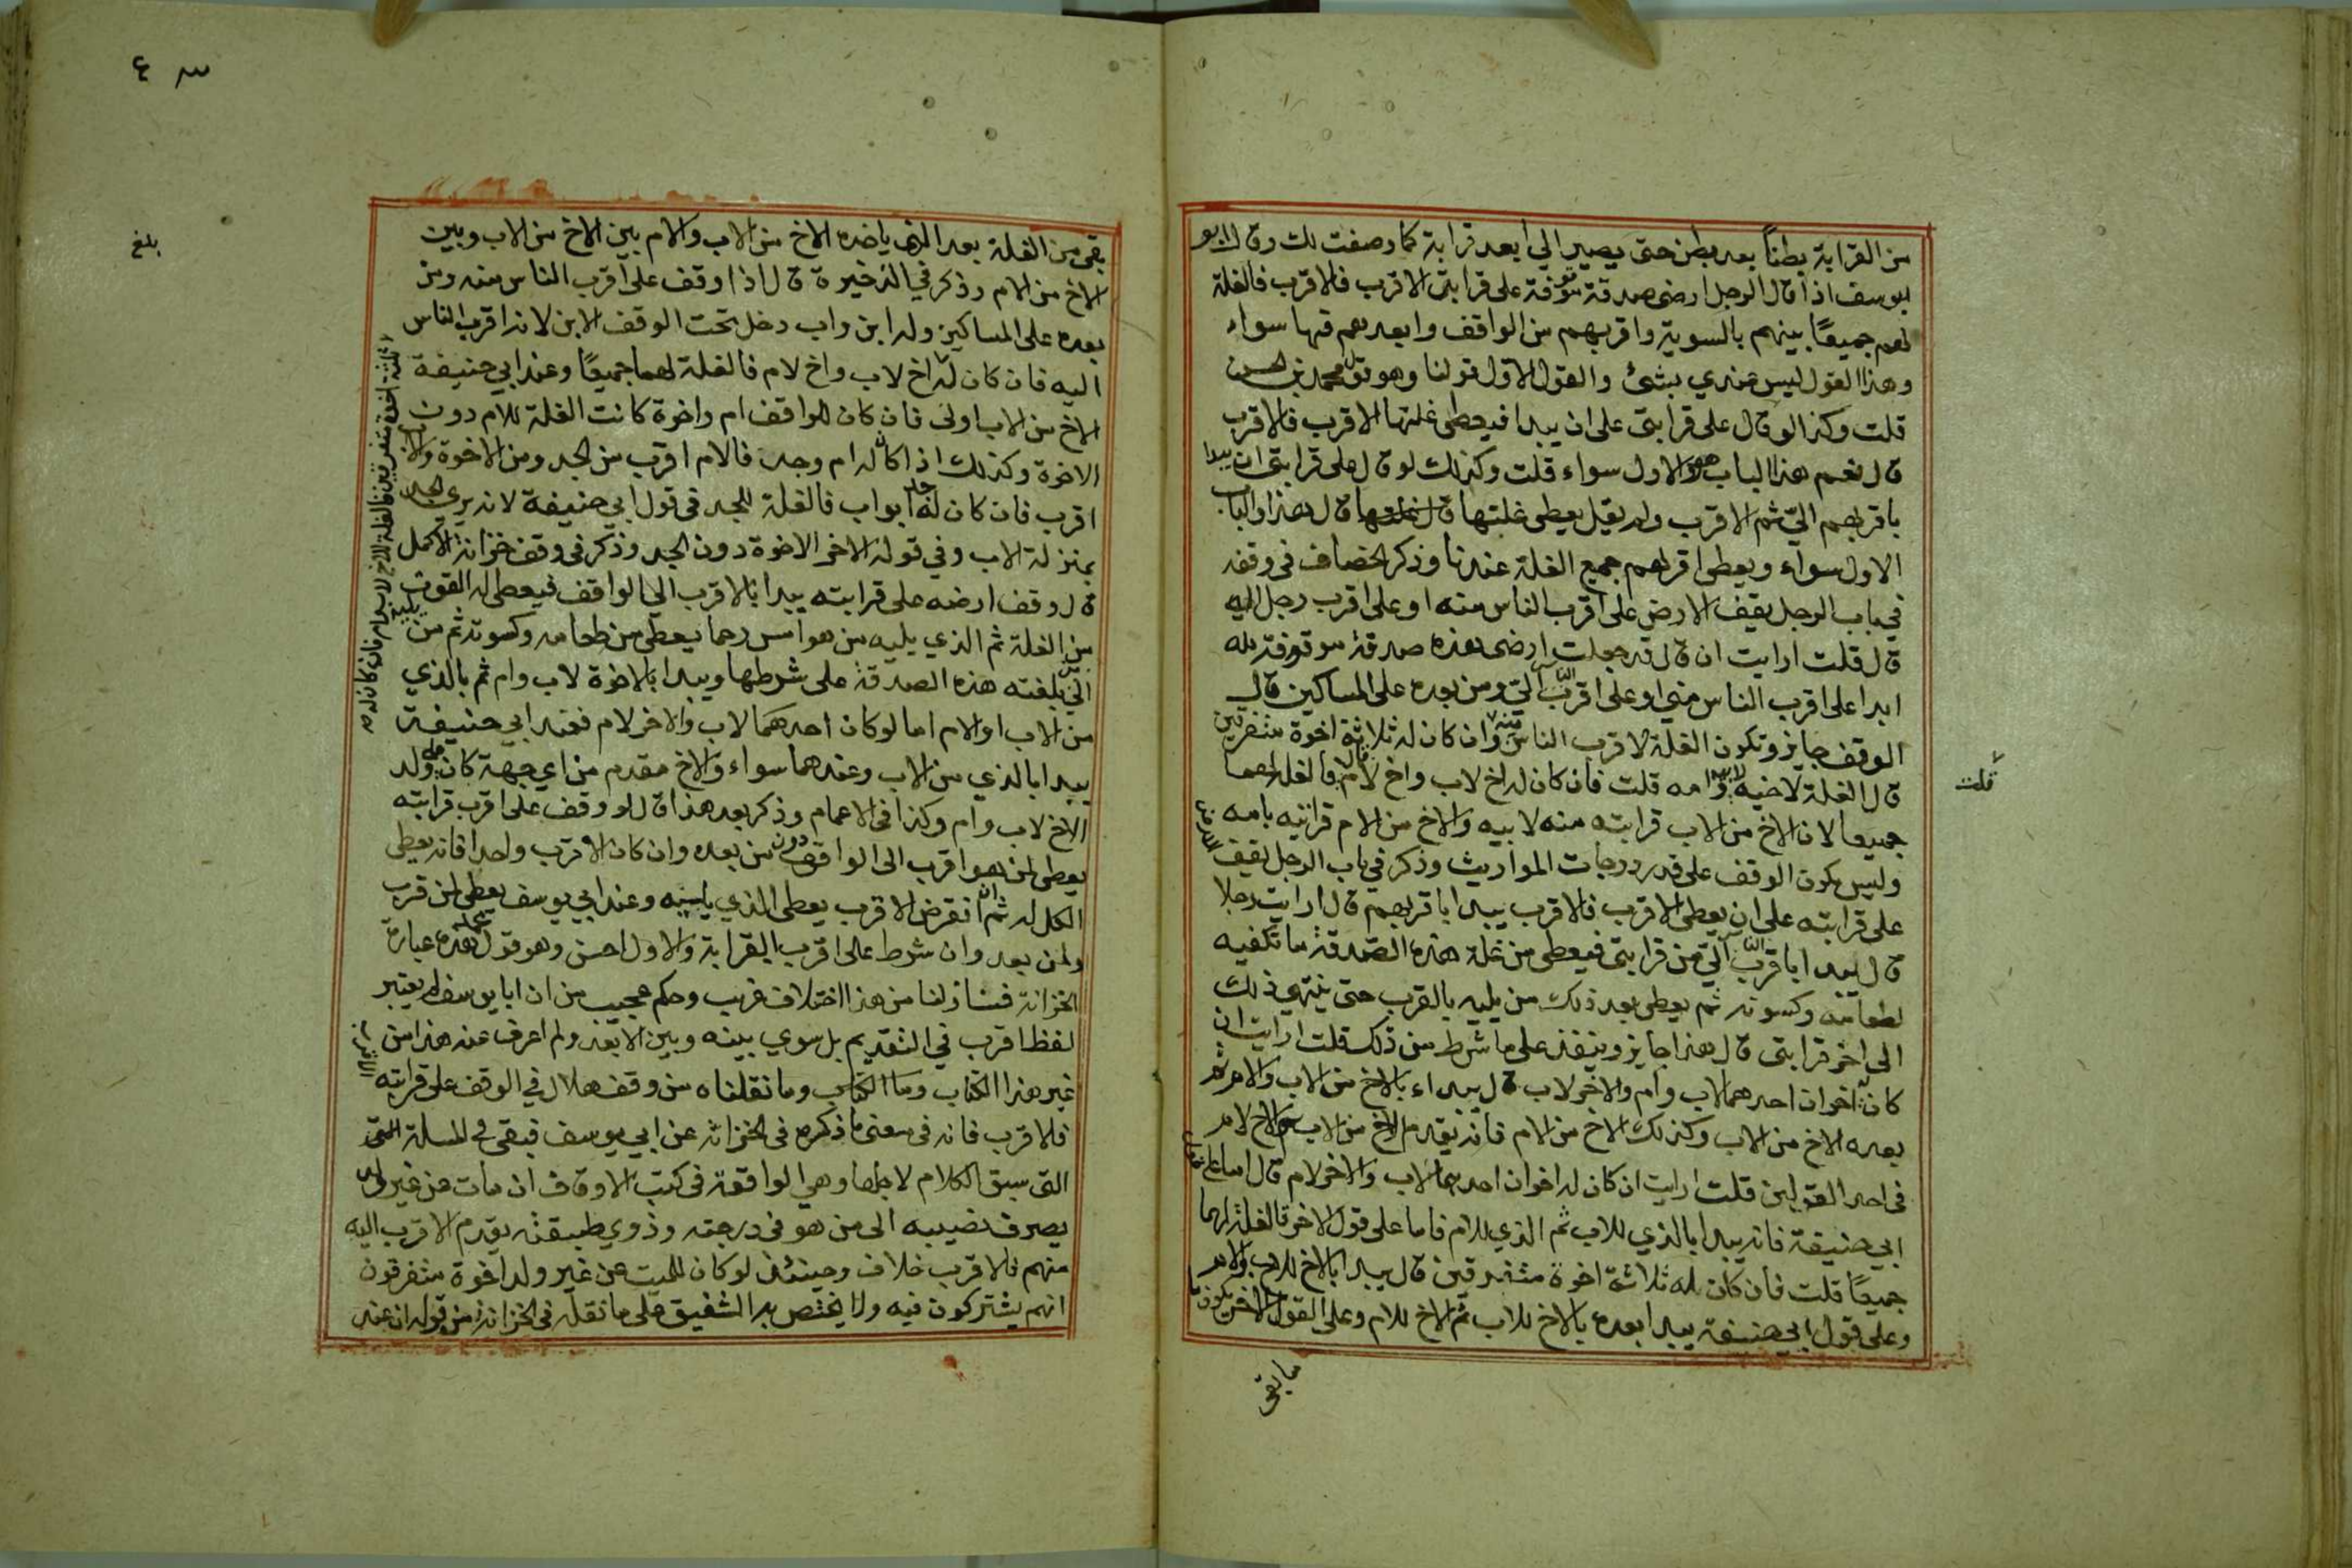 من القرابة بطناً بعد بطن حتى يصير الي ابعد قرابة كما وصفت لك وقال ابو
يوسف اذا قال الرجل ارضى صدقة موقوفة على قرابتى الاقرب فالاقرب فالغلة
لهم جميعًا بينهم بالسوية واقربهم من الواقف وابعدهم فيها سواء
وهذا القول ليس عندي بشئ والقول الاول قولنا وهو قول محمد بن الحسن
قلت وكذا لو قال على قرابتى على ان يبدا فيعطى غلتها الاقرب فالاقرب
قال نعم هذا الباب هو والاول سواء قلت وكذلك لو قال على قرابتى ان يبدا
باقربهم اليّ ثم الاقرب ولم يقل يعطى غلتها قال هذا والباب
الاول سواء ويعطى اقربهم جميع الغلة عندنا وذكر الخصاف فى وقفه
في باب الرجل يقف الارض على اقرب الناس منه او على اقرب رجل اليه
قال قلت ارايت ان قال قد جعلت ارضى هذه صدقة موقوفة لله
ابدا على اقرب الناس مني او على اقرب الناس اليّ ومن بعده على المساكين قال
الوقف جايز وتكون الغلة لاقرب الناس منه وان كان له ثلاثة اخوة متفرقين
قال الغلة لاخيه لابيه وامه قلت فان كان له اخ لاب واخ لام قال فالغلة لهما
جميعا لان الاخ من الاب قرابته منه لابيه والاخ من الام قرابته بامه
وليس يكون الوقف على قدر درجات المواريث وذكر في باب الرجل يقف الارض
على قرابته على ان يعطى الاقرب فالاقرب يبدا باقربهم قال ارايت رجلا
قال يبدا باقرب الناس اليّ من قرابتى فيعطى من غلة هذه الصدقة ما تكفيه
لطعامه وكسوته ثم يعطى بعد ذلك من يليه بالقرب حتى ينتهي ذلك
الى اخر قرابتى قال هذا جايز وينفذ على ما شرط من ذلك قلت ارايت ان
كان له اخوان احدهما لاب وام والاخر لاب قال يبداء بالاخ من الاب والام ثم
بعده الاخ من الاب وكذلك الاخ من الام فانه يقدم الاخ من الاب والاخ لام
فى احد القولين قلت ارايت ان كان له اخوان احدهما لاب والاخر لام قال اما على قول
ابي حنيفة فانه يبدا بالذي للاب ثم الذي للام فاما على قول الاخر فالغلة لهما
جميعًا قلت فان كان له ثلاثة اخوة متفرقين قال يبدا بالاخ للاب والام
وعلى قول ابي حنيفة يبدا بعده بالاخ للاب ثم الاخ للام وعلى القول الاخر يكون ما
قلت
ما بقى
بقى من الغلة بعد الذي ياخذه الاخ من الاب والام بين الاخ من الاب وبين
الاخ من الام وذكر في الذخيرة قال اذا وقف على اقرب الناس منه ومن
بعده على المساكين وله ابن واب دخل تحت الوقف الابن لانه اقرب الناس
اليه فان كان له اخ لاب واخ لام فالغلة لهما جميعًا وعند ابي حنيفة
الاخ من الاب اولى فان كان للواقف ام واخوة كانت الغلة للام دون
الاخوة وكذلك اذا كان له ام وجد فالام اقرب من الجد ومن الاخوة والاب
اقرب فان كان له جد ابو اب فالغلة للجد فى قول ابي حنيفة لانه يري الجد
بمنزلة الاب وفي قوله الاخر الاخوة دون الجد وذكر فى وقف خزانة الاكمل
قال وقف ارضه على قرابته يبدا بالاقرب الي الواقف فيعطى له القوت
من الغلة ثم الذي يليه من هو امس رحما يعطى من طعامه وكسوته ثم من يليه
بلغته هذه الصدقة على شرطها ويبدا بالاخوة لاب وام ثم بالذي
من الاب او الام اما لو كان احدهما لاب والاخر لام فعند ابي حنيفة
يبدا بالذي من الاب وعندهما سواء والاخ مقدم من اي جهة كان على ولد
الاخ لاب وام وكذا فى الاعمام وذكر بعد هذا قال لو وقف على اقرب قرابته
يعطى لمن هو اقرب الى الواقف دون من بعده وان كان الاقرب واحدا فانه يعطى
الكل له ثم ان انقرض الاقرب يعطى الذي يليه وعند ابي يوسف يعطى لمن قرب
ولمن بعد وان شرط على اقرب القرابة والاول احسن وهو قول محمد هذه عبارة
الخزانة فساق لنا من هذا اختلاف غريب وحكم عجيب من ان ابا يوسف لم يعتبر
لفظ اقرب في التقديم بل سوي بينه وبين الابعد ولم اعرف عنه هذا من
غير هذا الكتاب وما الكتاب وما نقلناه من وقف هلال في الوقف على قرابته
فالاقرب فانه فى معنى ما ذكره فى الخزانة عن ابي يوسف فبقى المسلة التى
التى سبق الكلام لاجلها وهي الواقعة فى كتب الاوقاف ان مات عن غير ولد
يصرف نصيبه الى من هو فى درجته وذوي طبقته يقدم الاقرب اليه
منهم فالاقرب خلاف وحينئذ لو كان للميت عن غير ولد اخوة متفرقون
انهم يشتركون فيه ولا يختص به الشقيق على ما نقله فى الخزانة من قوله ان عند
ثلثة اخوة متفرقين فالغلة للاخ لاب وام فان كان له
بلغ